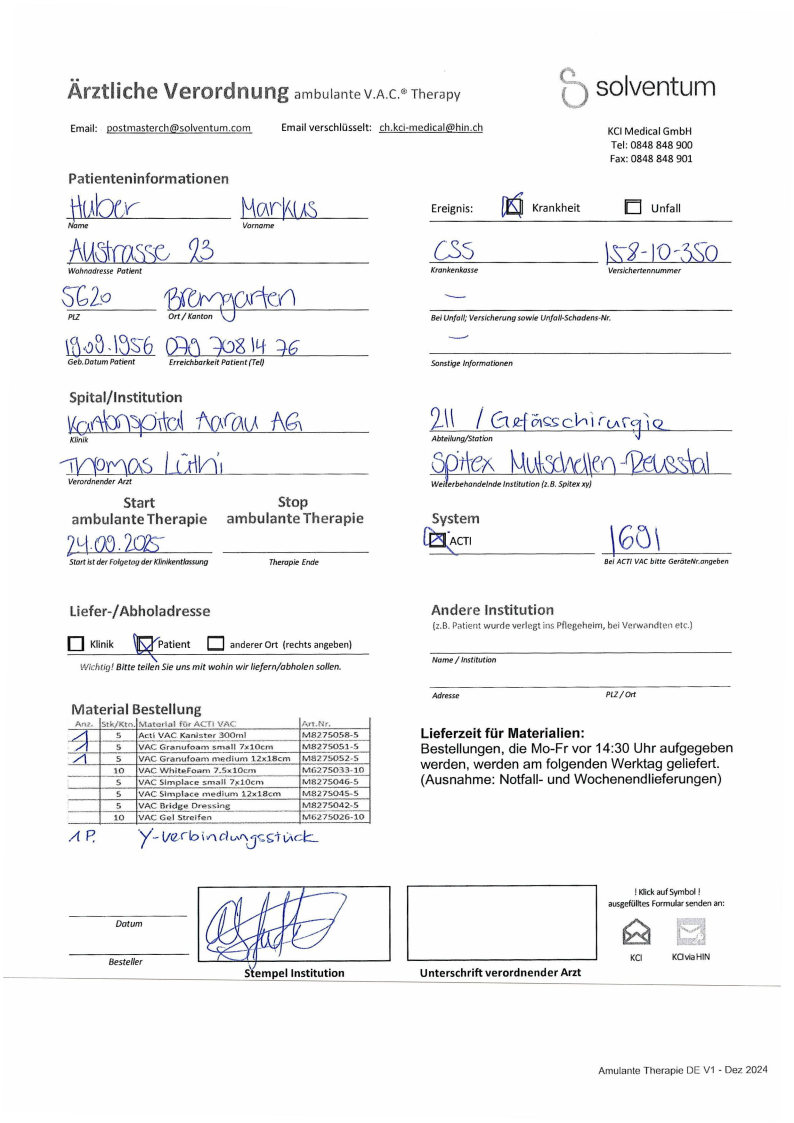 Ärztliche Verordnung ambulante V.A.C.® Therapy
solventum
Email: postmasterch@solventum.com Email verschlüsselt: ch.kci-medical@hin.ch
KCI Medical GmbH
Tel: 0848 848 900
Fax: 0848 848 901
Patienteninformationen
Huber Markus
Name Vorname
Austrasse 23
Wohnadresse Patient
5620 Bremgarten
PLZ Ort / Kanton
19.09.1956 079 708 14 76
Geb.Datum Patient Erreichbarkeit Patient (Tel)
Ereignis: Krankheit Unfall
CSS 158-10-350
Krankenkasse Versichertennummer
—
Bei Unfall; Versicherung sowie Unfall-Schadens-Nr.
—
Sonstige Informationen
Spital/Institution
Kantonspital Aarau AG
Klinik
Thomas Lüthi
Verordnender Arzt
211 / Gefässchirurgie
Abteilung/Station
Spitex Mutschellen-Reusstal
Weiterbehandelnde Institution (z.B. Spitex xy)
Start Stop
ambulante Therapie ambulante Therapie
24.09.2025
Start ist der Folgetag der Klinikentlassung Therapie Ende
System
ACTI 1691
Bei ACTI VAC bitte GeräteNr.angeben
Liefer-/Abholadresse
Klinik Patient anderer Ort (rechts angeben)
Wichtig! Bitte teilen Sie uns mit wohin wir liefern/abholen sollen.
Andere Institution
(z.B. Patient wurde verlegt ins Pflegeheim, bei Verwandten etc.)
Name / Institution
Adresse PLZ / Ort
Material Bestellung
Anz. Stk/Ktn. Material für ACTI VAC Art.Nr.
1 5 Acti VAC Kanister 300ml M8275058-5
1 5 VAC Granufoam small 7x10cm M8275051-5
1 5 VAC Granufoam medium 12x18cm M8275052-5
10 VAC WhiteFoam 7.5x10cm M6275033-10
5 VAC Simplace small 7x10cm M8275046-5
5 VAC Simplace medium 12x18cm M8275045-5
5 VAC Bridge Dressing M8275042-5
10 VAC Gel Streifen M6275026-10
1 P. Y-Verbindungsstück
Lieferzeit für Materialien:
Bestellungen, die Mo-Fr vor 14:30 Uhr aufgegeben
werden, werden am folgenden Werktag geliefert.
(Ausnahme: Notfall- und Wochenendlieferungen)
Datum
Besteller
Stempel Institution
Unterschrift verordnender Arzt
! Klick auf Symbol !
ausgefülltes Formular senden an:
KCI KCI via HIN
Amulante Therapie DE V1 - Dez 2024